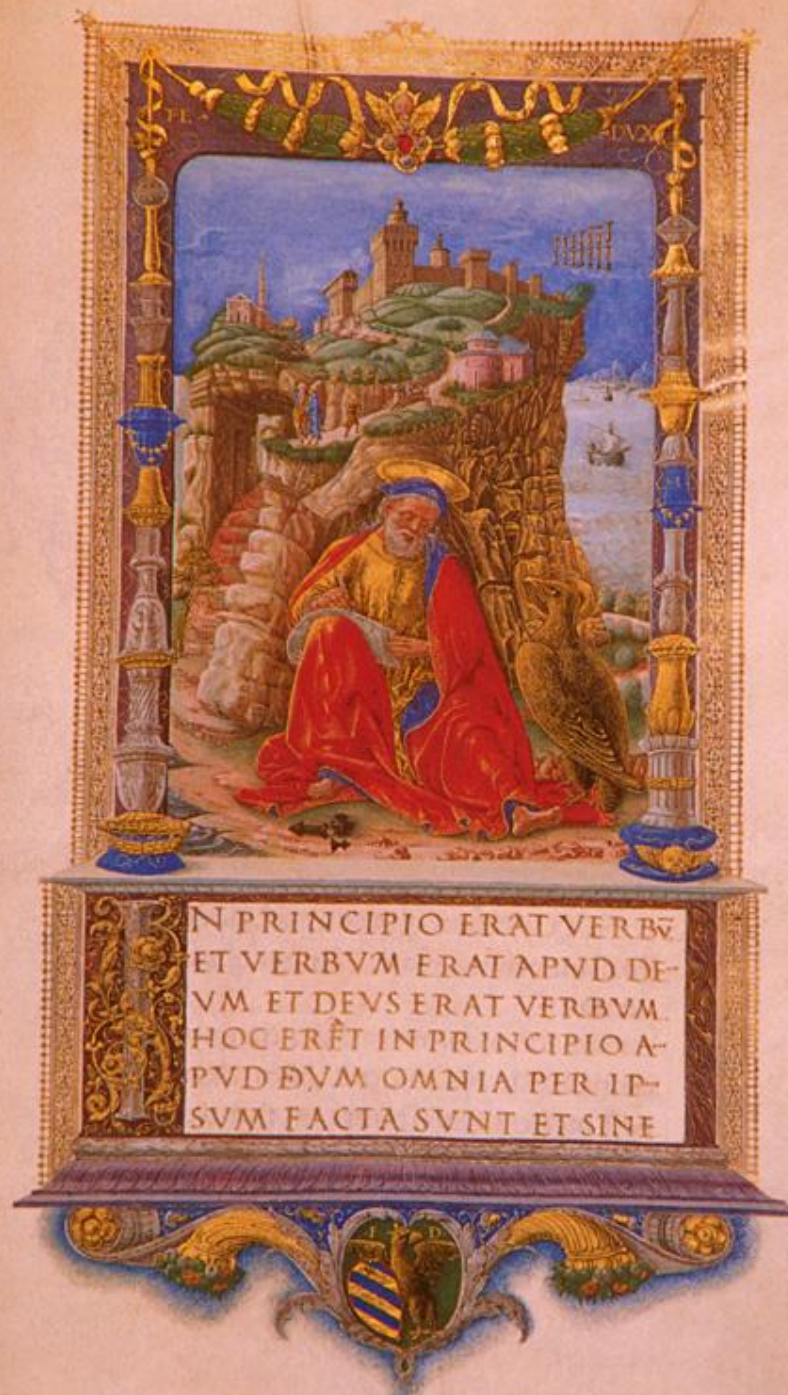 FE DVX
IN PRINCIPIO ERAT VERBV̅
ET VERBVM ERAT APVD DE-
VM ET DEVS ERAT VERBVM
HOC ERÊT IN PRINCIPIO A-
PVD ÐVM OMNIA PER IP-
SVM FACTA SVNT ET SINE
F D